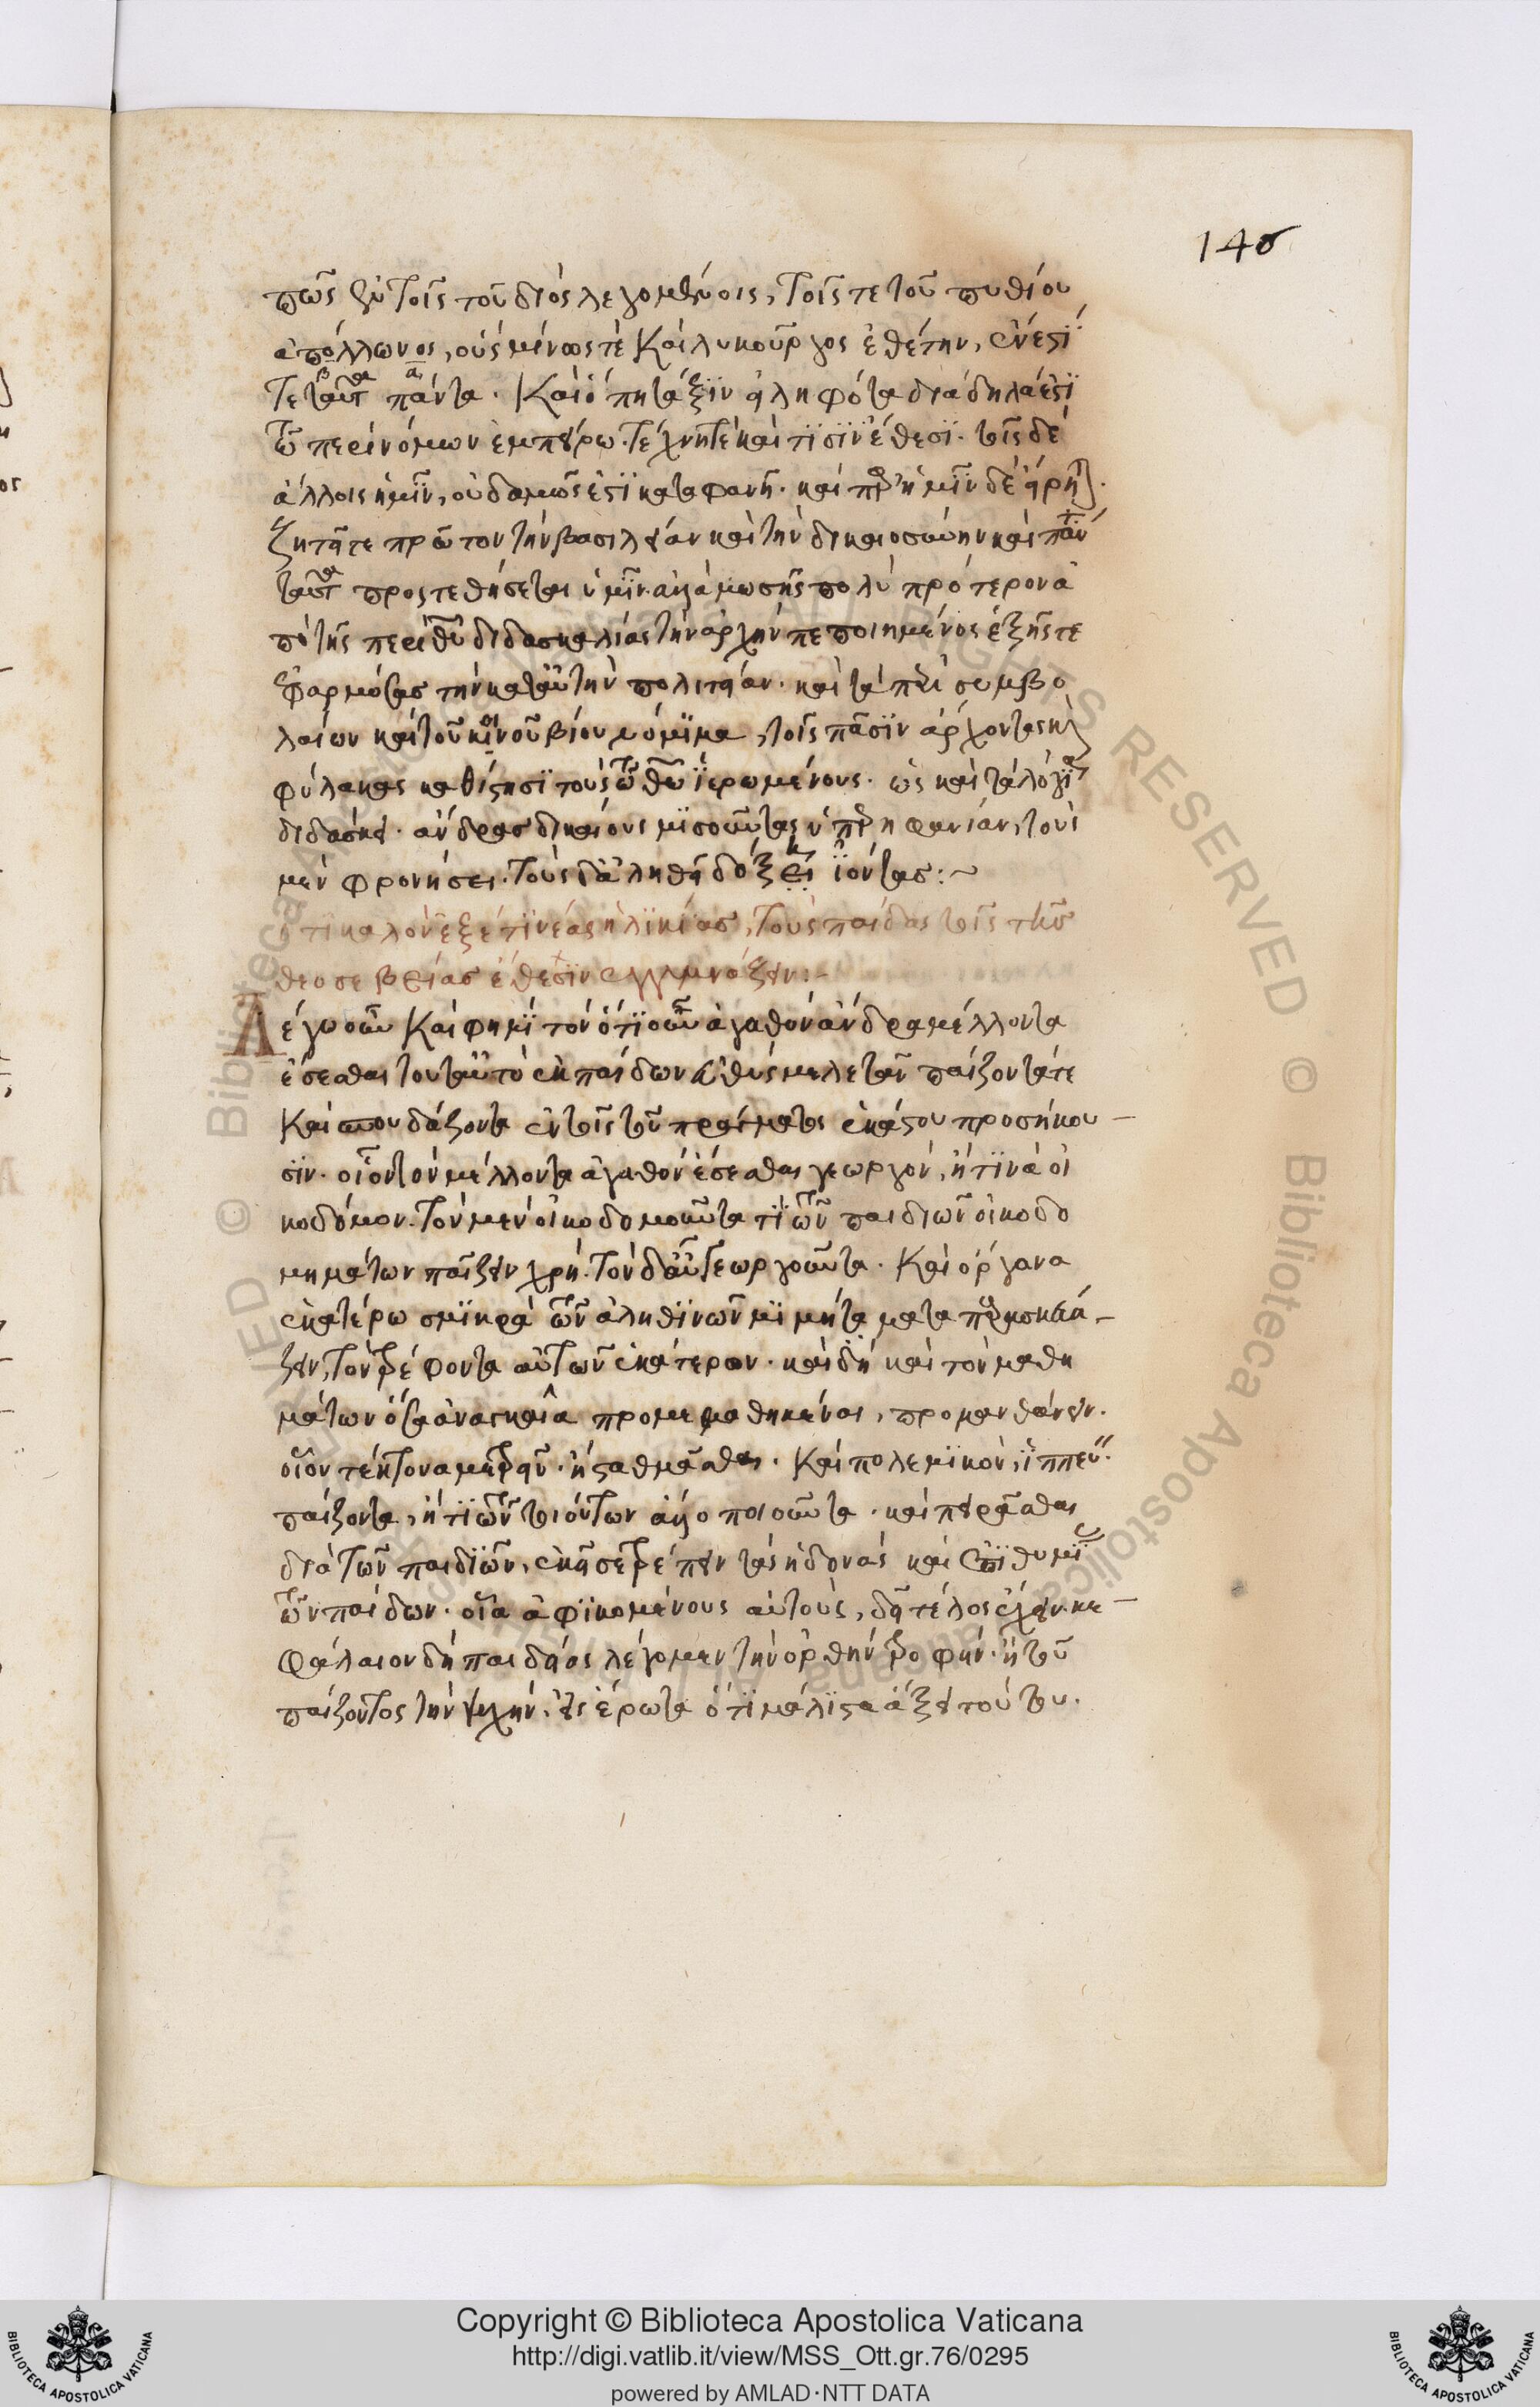 146
πῶς ἐν τοῖς τοῦ διὸς λεγομένοις, τοῖς τε τοῦ πυθίου
ἀπόλλωνος, οὓς μίνως τὲ καὶ λυκοῦργος ἐθέτην, ἔνεστί
τε ταῦτα πάντα. καὶ ὅπη τάξϊν εἰληφότα διάδηλά ἐστϊ
τῶ περὶ νόμων ἐμπείρω. τέχνη τὲ καὶ τϊσϊν ἔθεσϊ. τοῖς δὲ
ἄλλοις ἡμῖν, οὐδαμῶς ἐστϊ καταφανῆ. καὶ παρ' ἡμῖν δὲ εἴρηται.
ζητεῖτε πρῶτον τὴν βασιλείαν καὶ τὴν δικαιοσύνην καὶ πάντα
ταῦτα προςτεθήσεται ὑμῖν. ἀλλὰ μωσῆς πολὺ πρότερον ἀ
πὸ τῆς περὶ θεοῦ διδασκαλίας τὴν ἀρχὴν πεποιημένος ἑξῆς τε
ἐφαρμόσας τὴν κατ' αὐτὴν πολιτείαν. καὶ τὰ περὶ συμβο
λαίων καὶ τοῦ κοινοῦ βίου νόμϊμα, τοῖς πᾶσϊν ἄρχοντας καὶ
φύλακας καθίστησϊ τοὺς τῶ θεῶ ἱερωμένους. ὡς καὶ τὰ λόγια
διδάσκει. ἄνδρας δικαίους μϊσοῦντας ὑπερηφανίαν, τοὺς
μὲν φρονήσει. τοὺς δ' ἀληθεῖ δόξη ἰόντας:~
ὅτι καλὸν ἐξέτϊ νέας ἡλϊκίας, τοὺς παῖδας τοῖς τῆς
θεοσεβείας ἔθεσϊν ἐγγυμνάζειν:-
Λέγω οὖν καὶ φημϊ τὸν ὁτϊοῦν ἀγαθὸν ἄνδρα μέλλοντα
ἔσεσθαι τοῦτ' αὐτὸ ἐκ παίδων εὐθὺς μελετᾶν παίζοντά τε
καὶ σπουδάζοντα ἐν τοῖς τοῦ πράγματος ἑκάστου προσήκου-
σϊν. οἷον τὸν μέλλοντα ἀγαθὸν ἔσεσθαι γεωργόν, ἤ τϊνα οἰ
κοδόμον. τὸν μὲν οἰκοδομοῦντα τϊ τῶν παιδιῶν οἰκοδο
μημάτων παίζειν χρή. τὸν δ' αὖ γεωργοῦντα. καὶ ὄργανα
ἑκατέρω σμϊκρὰ τῶν ἀληθϊνῶν μϊμήματα παρασκευά-
ζειν, τὸν τρέφοντα αὐτῶν ἑκάτερον. καὶ δὴ καὶ τὸν μαθη
μάτων ὅσα ἀναγκαῖα προμεμαθηκέναι, προμανθάνειν.
οἷον τέκτονα μετρεῖν. ἢ σταθμᾶσθαι. καὶ πολεμϊκὸν, ἱππεύειν
παίζοντα, ἤ τϊ τῶν τοιούτων ἄλλο ποιοῦντα. καὶ πειρᾶσθαι
διὰ τῶν παιδιῶν, ἐκεῖσε τρέπειν τὰς ἡδονὰς καὶ ἐπϊθυμϊ
τῶν παίδων. οἷ ἀφϊκομένους αὐτοὺς, δεῖ τέλος ἔχειν. κε-
φάλαιον δὴ παιδείας λέγομεν τὴν ὀρθὴν τροφήν. ἣ τοῦ
παίζοντος τὴν ψυχήν. εἰς ἔρωτα ὅτϊ μάλϊστα ἄξει τούτου.
Copyright © Biblioteca Apostolica Vaticana
http://digi.vatlib.it/view/MSS_Ott.gr.76/0295
powered by AMLAD·NTT DATA